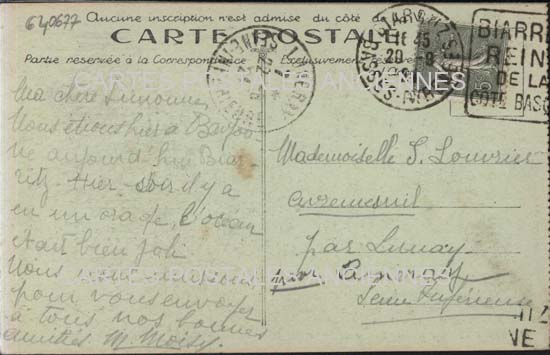 640677
Aucune inscription n'est admise du côté de
CARTE POSTALE
Partie réservée à la Correspondance Exclusivement
CARTES POSTALES ANCIENNES
BIARRITZ 
REINE
DE LA
CÔTE BASQUE
Ma chère Simonne,
Nous étions hier à Bayon
ne aujourd'hui Biar-
ritz. Hier soir il y a
eu un orage, l'océan
était bien joli
Nous nous unissons
pour vous envoyer
à tous nos bonnes
amitiés M. Moisy
Mademoiselle S. Louvrier
Avremesnil
par Luneray
Seine Inférieure
CARTES POSTALES ANCIENNES
NE